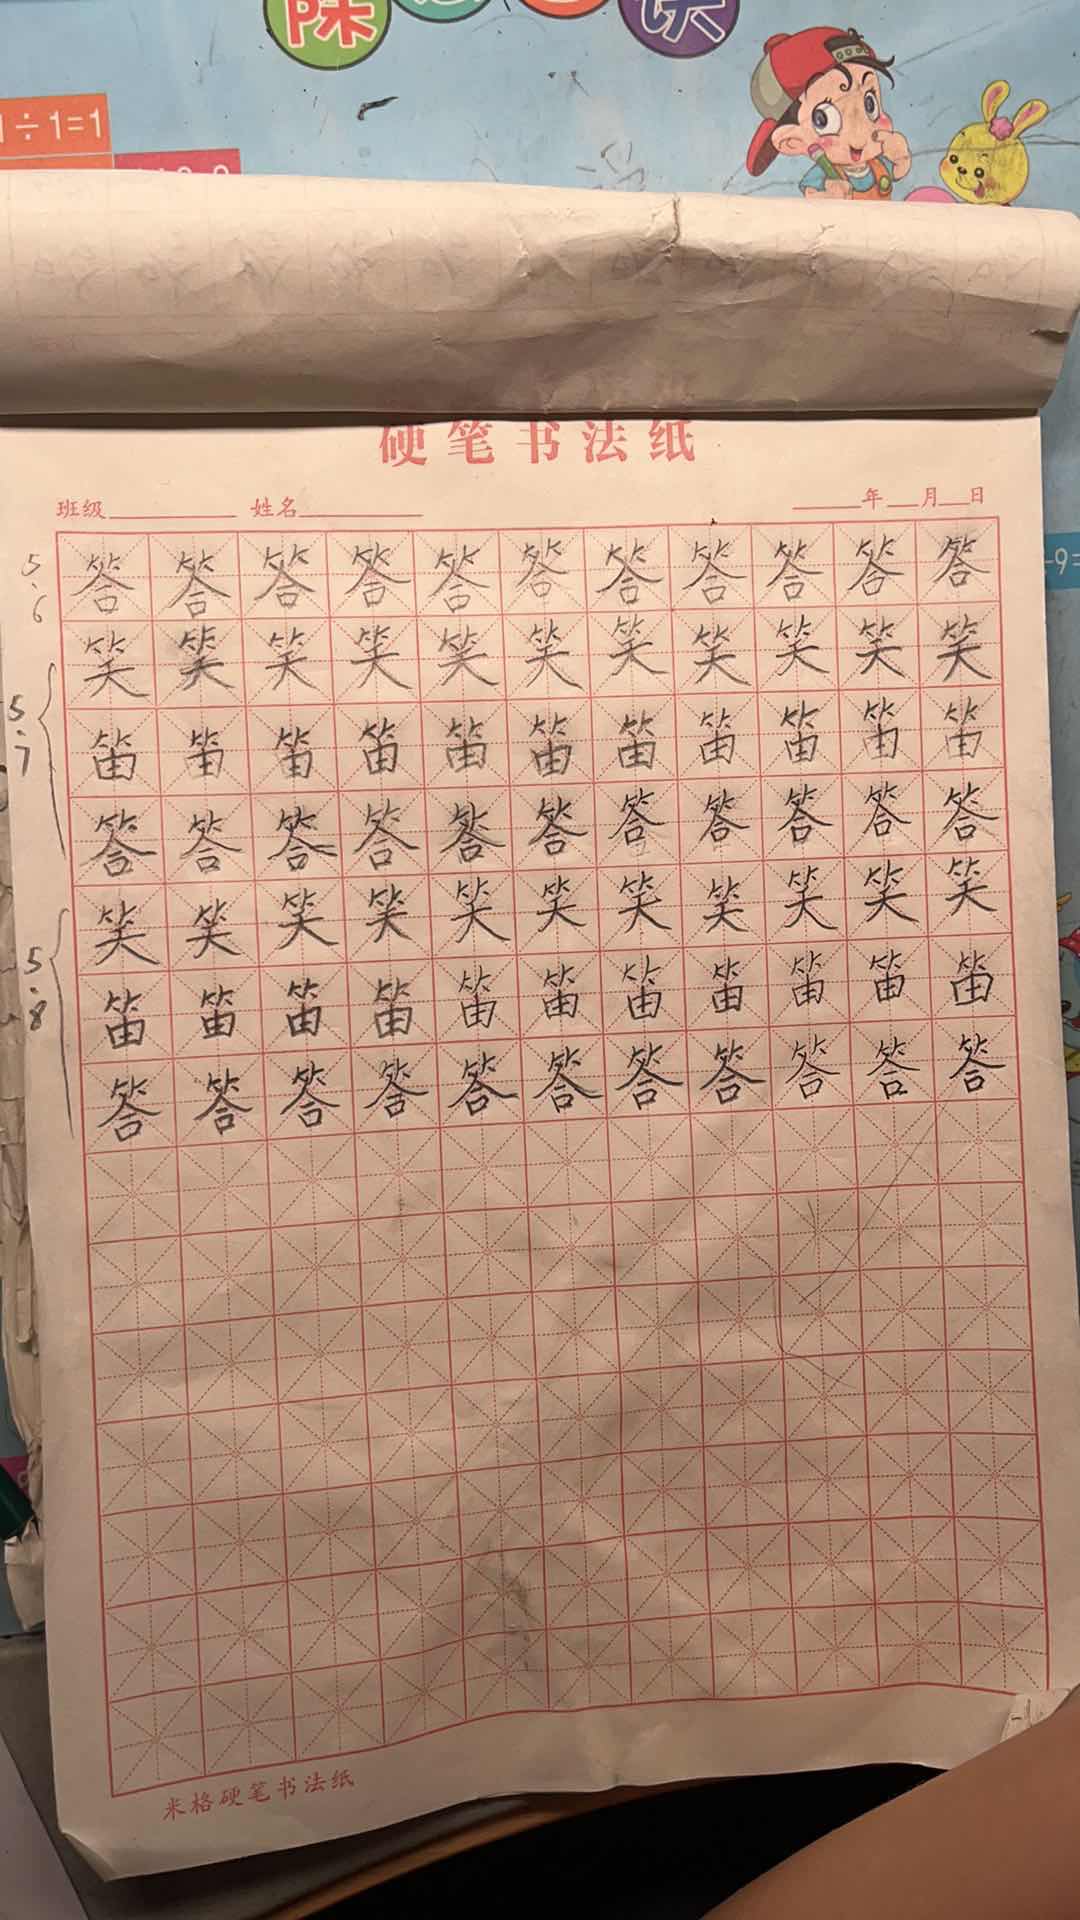 1÷1=1
硬笔书法纸
班级 姓名 年 月 日
5.6 答答答答答答答答答答答
笑笑笑笑笑笑笑笑笑笑笑
5.7 笛笛笛笛笛笛笛笛笛笛笛
答答答答答答答答答答答
笑笑笑笑笑笑笑笑笑笑笑
5.8 笛笛笛笛笛笛笛笛笛笛笛
答答答答答答答答答答答
米格硬笔书法纸